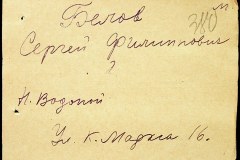 Белов
Сергей Филиппович
?
Н. Водопой
Ул. К. Маркса 16.